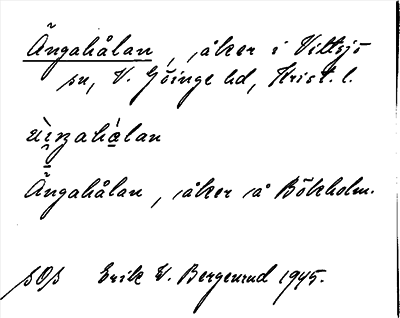 Ängahålan, åker i Vittsjö
sn, V. Göinge hd, Krist. l.
Ängahålan, åker å Bökholm.
sOs Erik W. Bergenrud 1945.